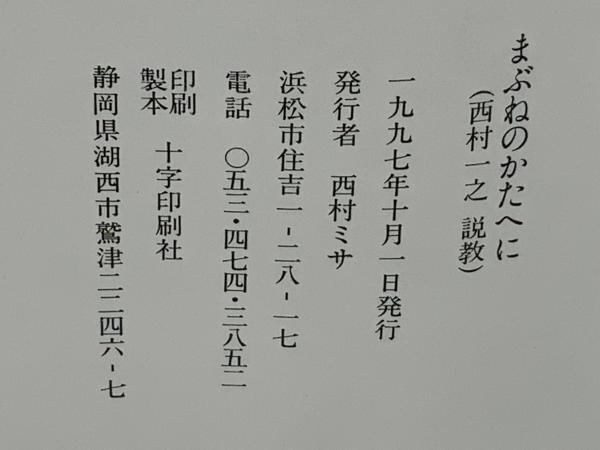 まぶねのかたへに
(西村一之 説教)
一九九七年十月一日発行
発行者 西村ミサ
浜松市住吉一-二八-一七
電話 〇五三・四七四・三八五二
印刷
製本 十字印刷社
静岡県湖西市鷲津二二四六-七